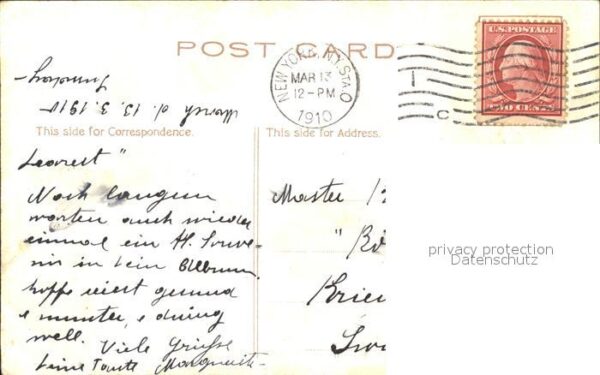 POST CARD
NEW YORK, N.Y. STA. O
MAR 13
12-PM
1910
U.S. POSTAGE
TWO CENTS
C
Newyork d. 13. 3. 1910
This side for Correspondence.
This side for Address.
Dearest
Nach langem
warten auch wieder
einmal ein kl. Souve-
nir in dein Album
hoffe seist gesund
& munter, & doing
well. Viele Grüsse
Deine Tante Marguerite
Master
privacy protection
Datenschutz